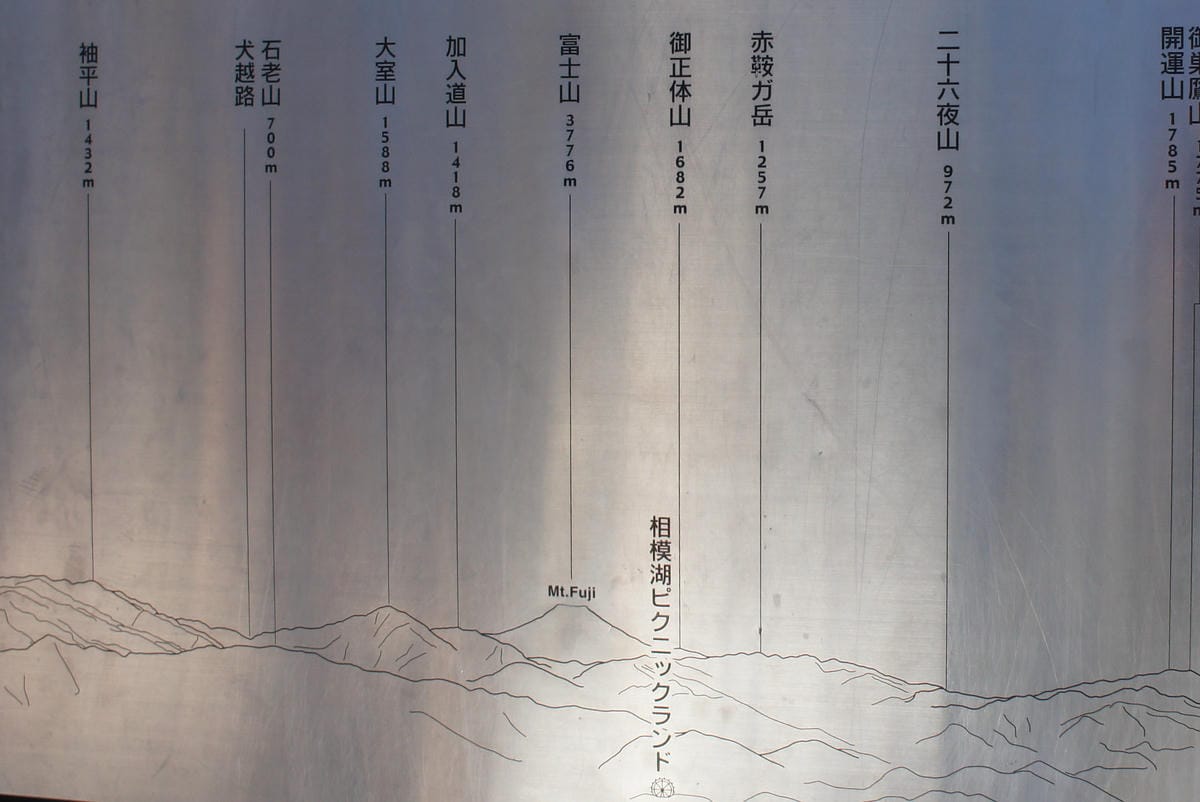 袖平山 1432m
犬越路
石老山 700m
大室山 1588m
加入道山 1418m
富士山 3776m
Mt.Fuji
相模湖ピクニックランド
御正体山 1682m
赤鞍ガ岳 1257m
二十六夜山 972m
開運山 1785m